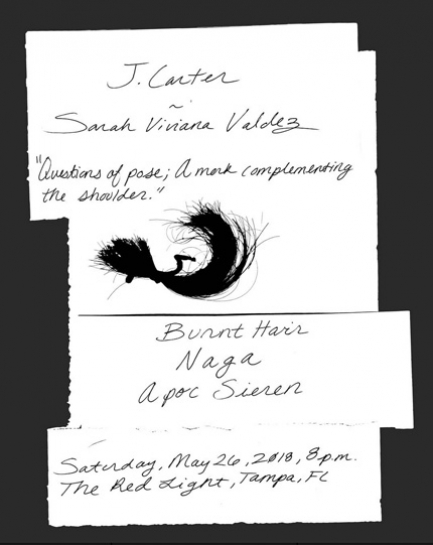 J. Carter
~
Sarah Viviana Valdez
"Questions of pose; A mark complementing
the shoulder."
Burnt Hair
Naga
Apoc Sieren
Saturday, May 26, 2018, 8 p.m.
The Red Light, Tampa, FL